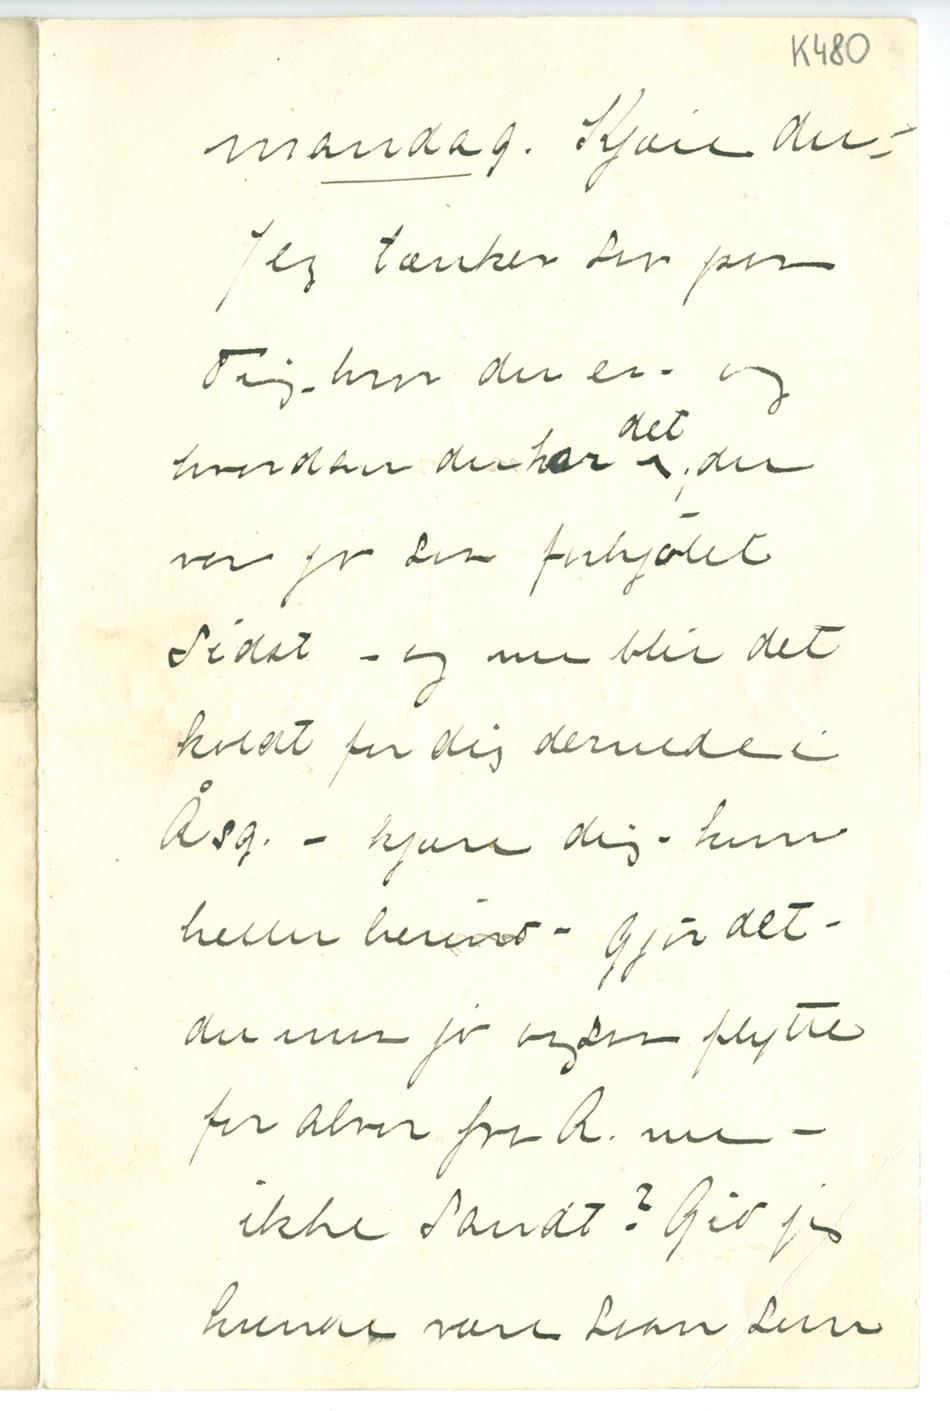 K480
mandag. Kjære du –
Jeg tænker saa paa
Dig – hvor du er – og
hvordan du har det, du
var jo saa forkjølet
sidst – og nu blir det
koldt for dig dernede i
Åsg. – kjære dig – kom
heller herind – Gjør det –
du maa jo ogsaa flytte
for alvor fra A. nu –
ikke Sandt? Gid jeg
kunde være saan som